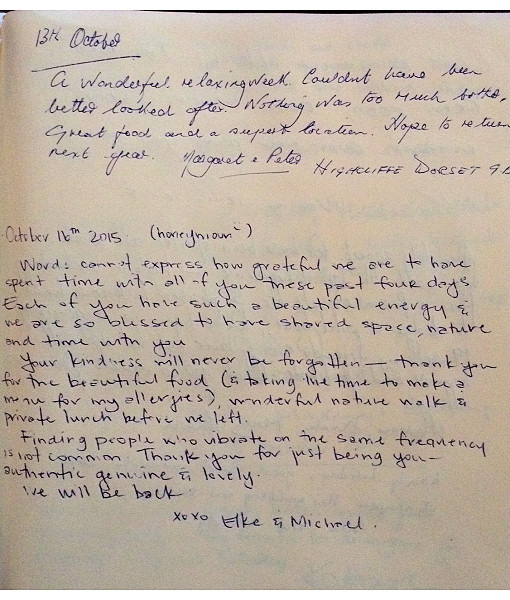 13th October
A wonderful relaxing week. Couldnt have been
better looked after. Nothing was too much bother,
Great food and a superb location. Hope to return
next year. Margaret & Peter
HIGHCLIFFE DORSET GB
October 16th 2015. (honeymoon)
Words cannot express how grateful we are to have
spent time with all of you these past four days
Each of you have such a beautiful energy &
we are so blessed to have shared space, nature
and time with you
Your kindness will never be forgotten — thank you
for the beautiful food (& taking the time to make a
menu for my allergies), wonderful nature walk &
private lunch before we left.
Finding people who vibrate on the same frequency
is not common. Thank you for just being you —
authentic genuine & lovely.
We will be back
xoxo Elke & Michael.